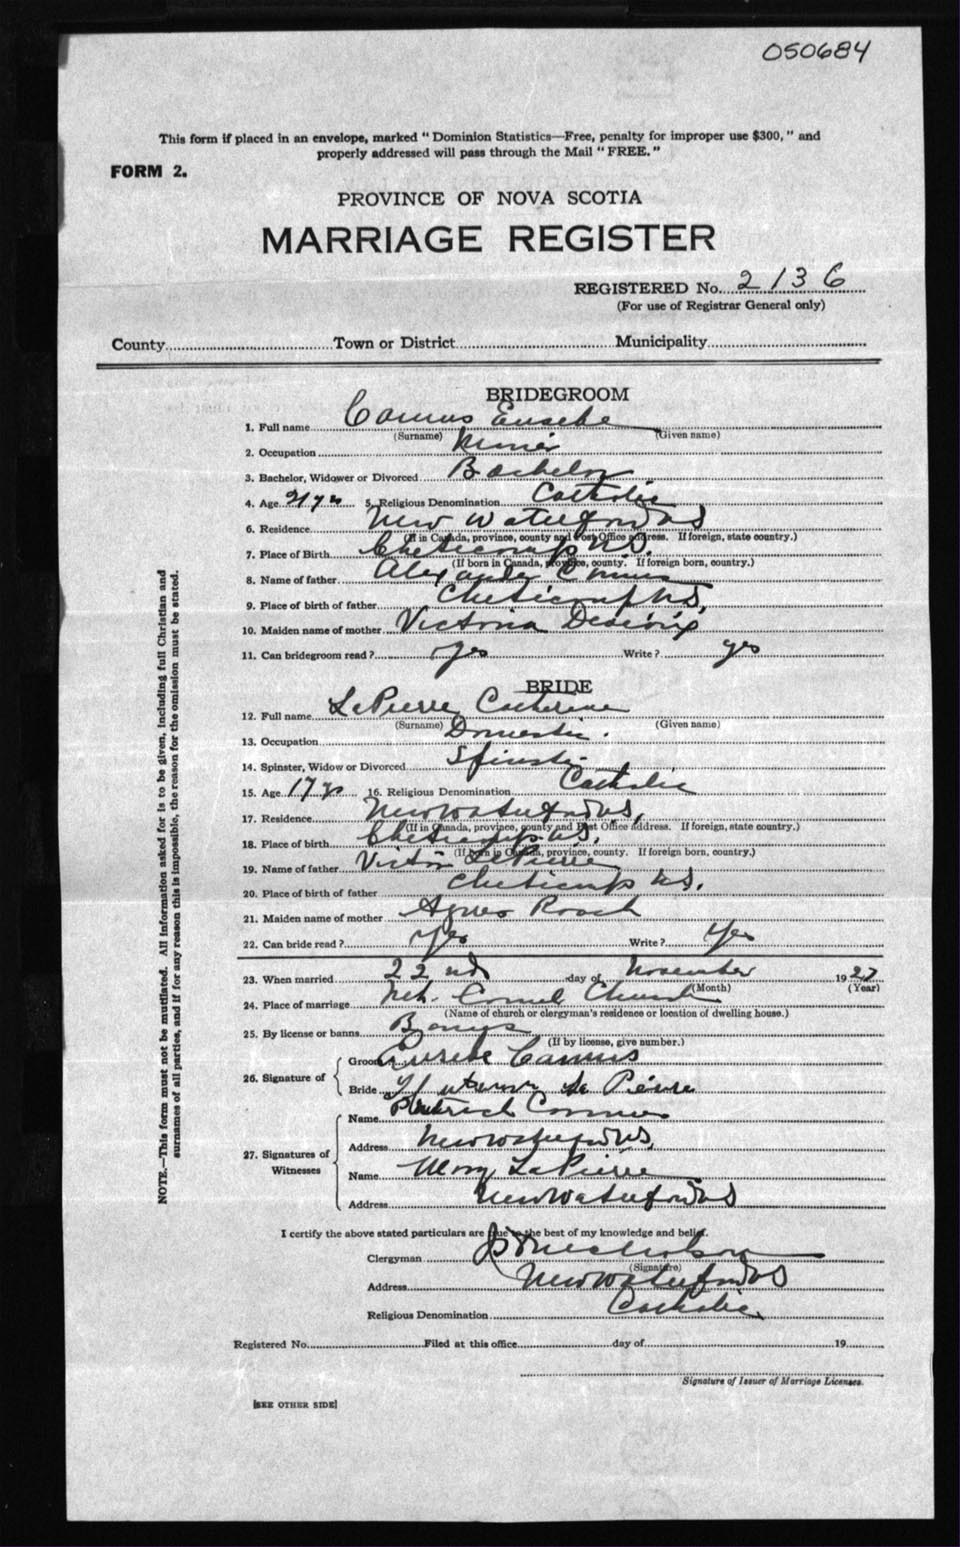 050684
This form if placed in an envelope, marked "Dominion Statistics—Free, penalty for improper use $300," and
properly addressed will pass through the Mail "FREE."
FORM 2.
PROVINCE OF NOVA SCOTIA
MARRIAGE REGISTER
REGISTERED No. 2136
(For use of Registrar General only)
County Town or District Municipality
BRIDEGROOM
1. Full name Camus Eusebe
(Surname) (Given name)
2. Occupation Miner
3. Bachelor, Widower or Divorced Bachelor
4. Age 21 yrs 5. Religious Denomination Catholic
6. Residence New Waterford NS
(If in Canada, province, county and Post Office address. If foreign, state country.)
7. Place of Birth Cheticamp N.S.
(If born in Canada, province, county. If foreign born, country.)
8. Name of father Alexander Camus
9. Place of birth of father Cheticamp NS,
10. Maiden name of mother Victoria
11. Can bridegroom read? Yes Write? yes
BRIDE
12. Full name LePierre Catherine
(Surname) (Given name)
13. Occupation Domestic.
14. Spinster, Widow or Divorced Spinster
15. Age 17 yrs 16. Religious Denomination Catholic
17. Residence New Waterford NS,
(If in Canada, province, county and Post Office address. If foreign, state country.)
18. Place of birth Cheticamp N.S,
(If born in Canada, province, county. If foreign born, country.)
19. Name of father Victor LePierre
20. Place of birth of father Cheticamp NS.
21. Maiden name of mother Agnes Roach
22. Can bride read? Yes Write? Yes
23. When married 22nd day of November 1927
(Month) (Year)
24. Place of marriage Mt. Carmel Church
(Name of church or clergyman's residence or location of dwelling house.)
25. By license or banns Banns
(If by license, give number.)
26. Signature of
Groom Eusebe Camus
Bride Le Pierre
27. Signatures of Witnesses
Name
Address New Waterford NS,
Name Mary LePierre
Address New Waterford NS
I certify the above stated particulars are true to the best of my knowledge and belief.
Clergyman Nicholson
(Signature)
Address New Waterford NS
Religious Denomination Catholic
Registered No. Filed at this office day of 19
Signature of Issuer of Marriage Licenses.
[SEE OTHER SIDE]
NOTE.—This form must not be mutilated. All information asked for is to be given, including full Christian and
surnames of all parties, and if for any reason this is impossible, the reason for the omission must be stated.